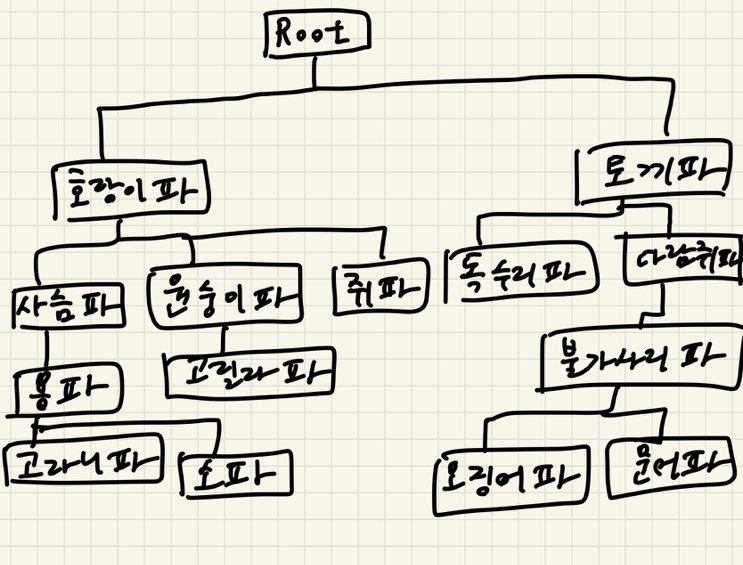 Root
호랑이파
토끼파
사슴파
원숭이파
쥐파
독수리파
다람쥐파
용파
고릴라파
불가사리 파
고라니파
소파
오징어파
문어파